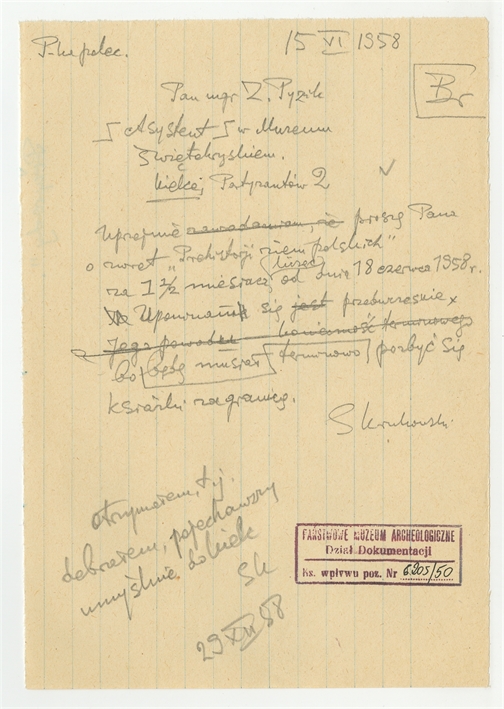 P-ka polec.
15 VI 1958
Br
Pan mgr Z. Pyzik
Asystent w Muzeum
Świętokrzyskiem.
Kielce, Partyzantów 2
Uprzejmie zawiadamiam, że proszę Pana
o zwrot "Prehistorji ziem polskich"
za 1 1/2 miesiąca licząc od dnia 18 czerwca 1958 r.
Upominam się jest przedwcześnie
Jego powodem konieczność terminowego
bo będę musiał terminowo pozbyć się
książki zagranicę.
Skrukowski
otrzymałem, t.j.
odebrałem, pojechawszy
umyślnie do Kielc
Sk
29 XII 58
PAŃSTWOWE MUZEUM ARCHEOLOGICZNE
Dział Dokumentacji
ks. wpływu poz. Nr 6205/50